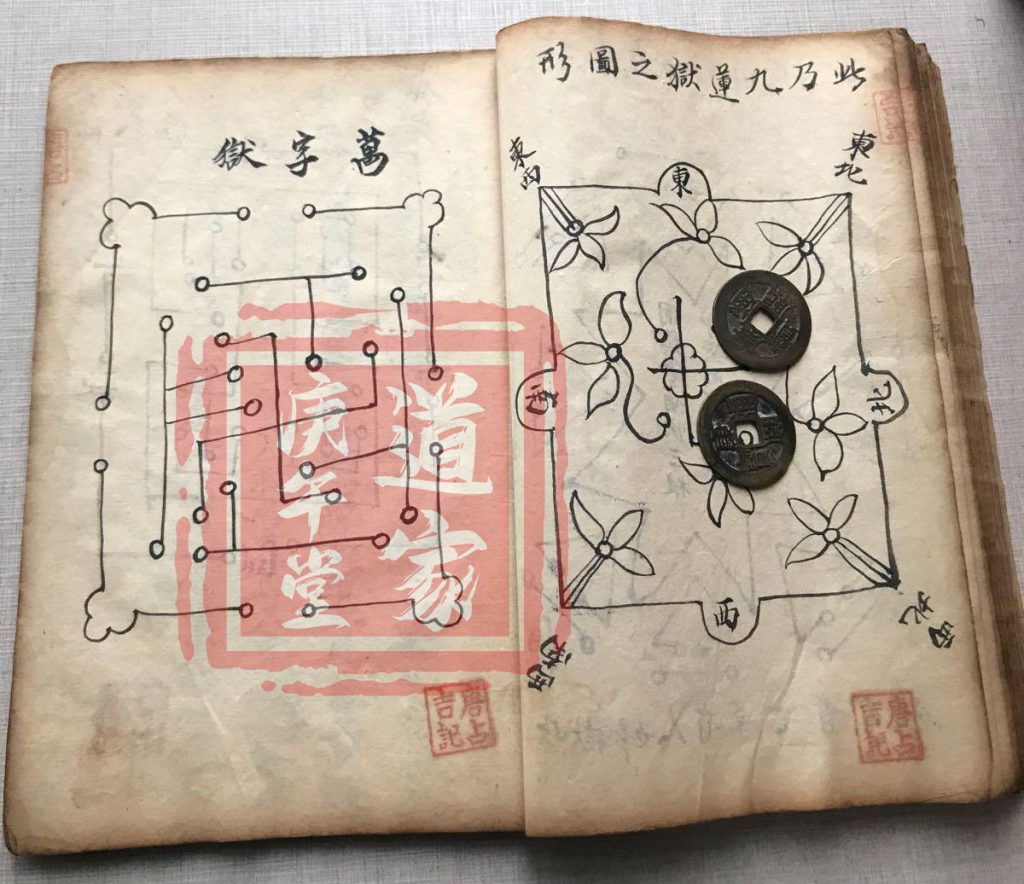 此乃九蓮獄之圖形
東北
東
東西
北
南
西
西北
西南
唐占
吉記
萬字獄
道家
庚午堂
唐占
吉記